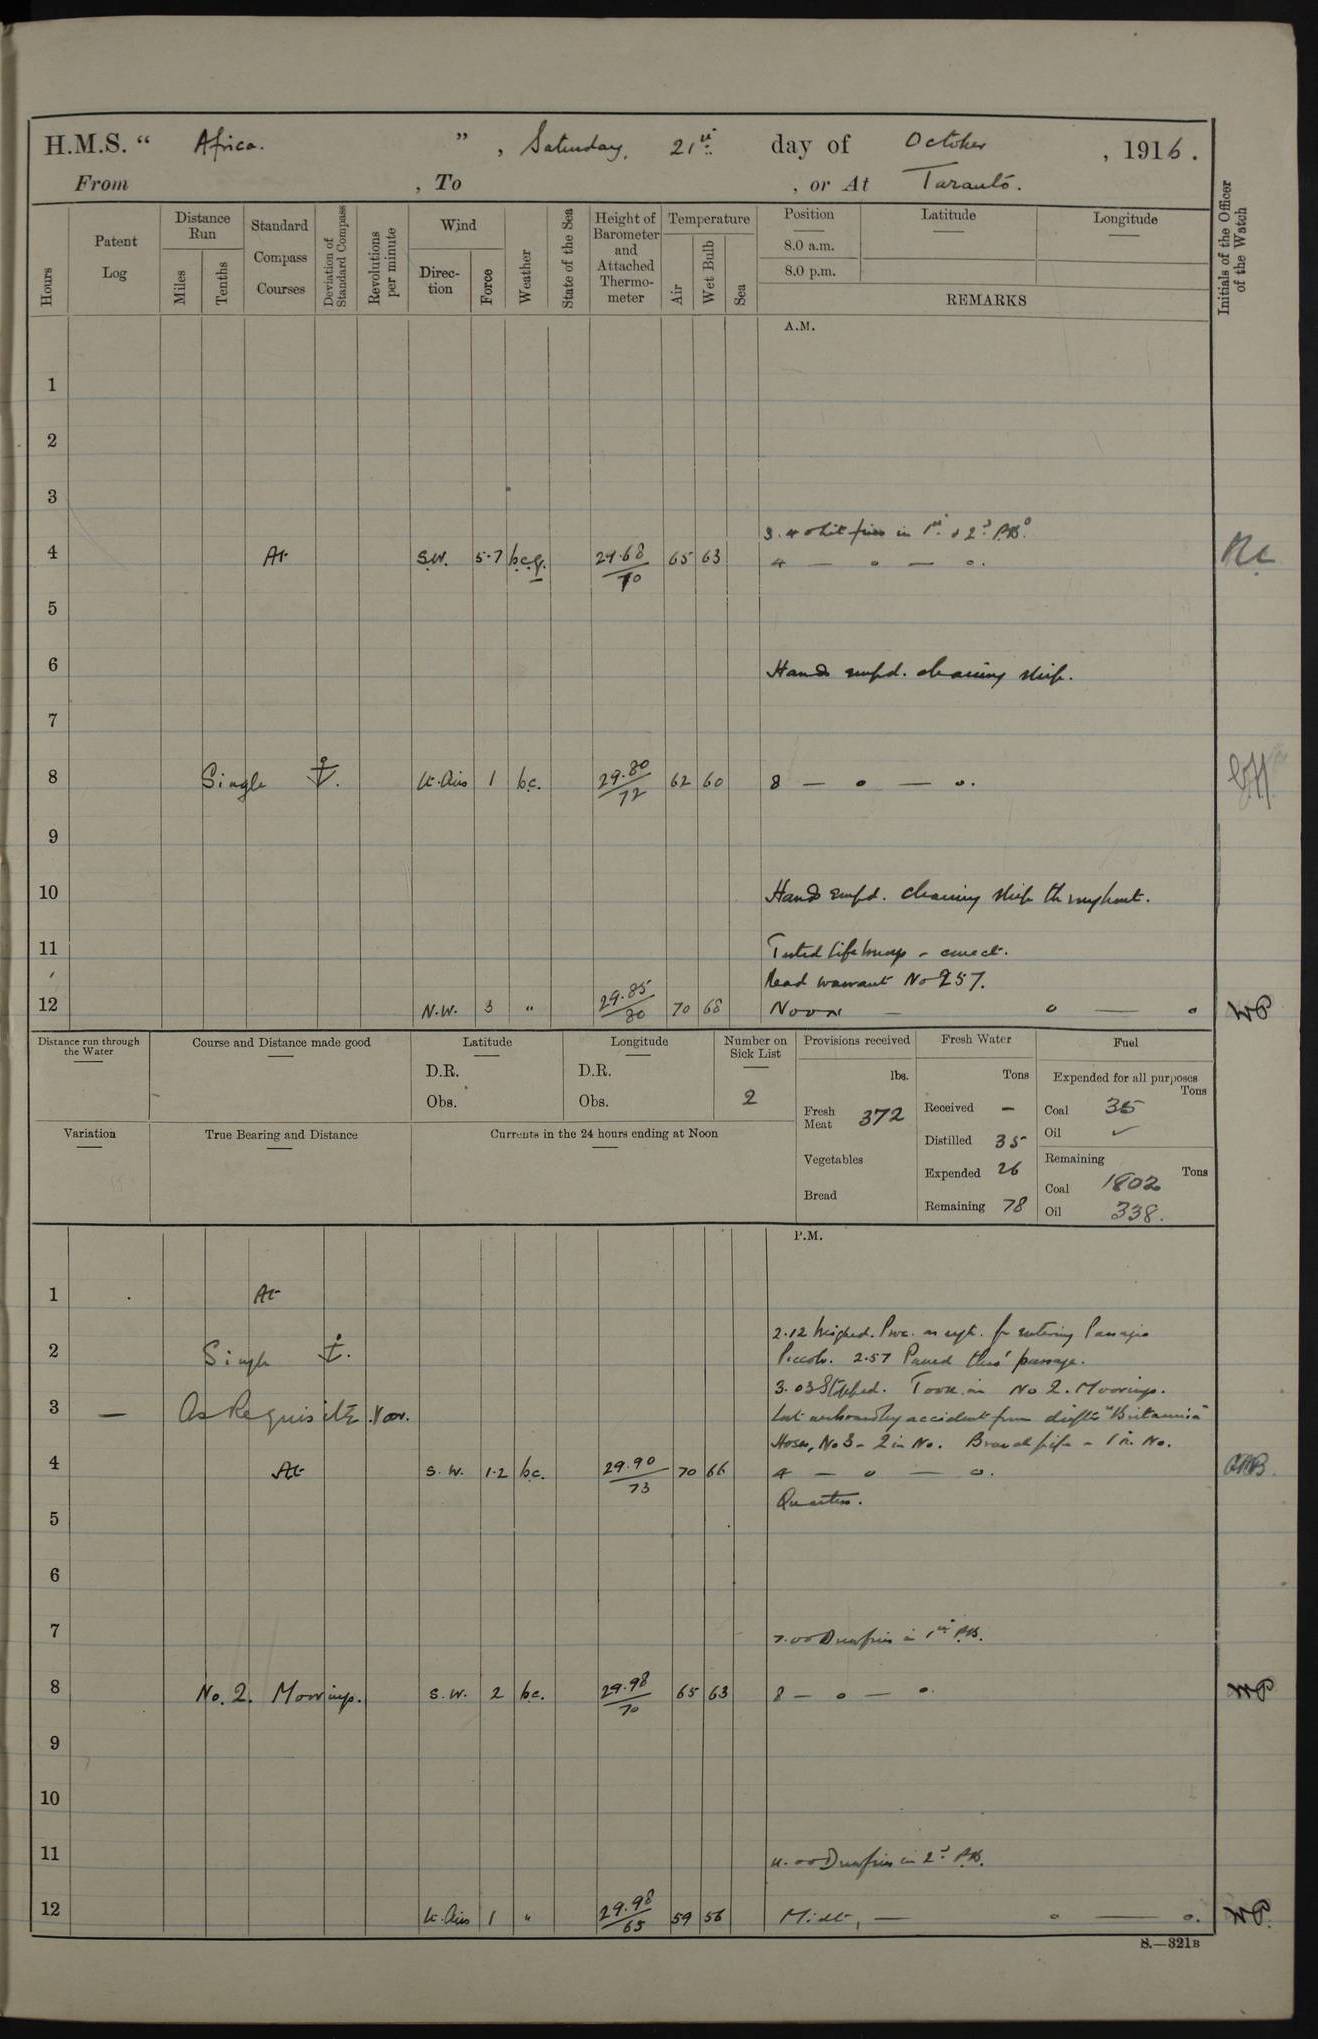 H.M.S. “ Africa. ” , Saturday, 21st day of October , 1916.
From , To , or At Taranto.
Hours
Patent Log
Distance Run
Miles
Tenths
Standard Compass Courses
Deviation of Standard Compass
Revolutions per minute
Wind
Direction
Force
Weather
State of the Sea
Height of Barometer and Attached Thermometer
Temperature
Air
Wet Bulb
Sea
Position
8.0 a.m.
8.0 p.m.
Latitude
Longitude
REMARKS
Initials of the Officer of the Watch
A.M.
1
2
3
3.40 Lit fires in 1st & 2d P.Bs
4 At S.W. 5-7 b.c.q. 29.68/70 65 63 4 — o — o.
5
6 Hands empd. cleaning ship.
7
8 Single ⚓. Lt. Airs 1 b.c. 29.80/72 62 60 8 — o — o.
9
10 Hands empd. cleaning ship throughout.
11 Tested lifebuoys – correct.
Read warrant No 257.
12 N.W. 3 " 29.85/80 70 68 Noon — o — o
Distance run through the Water
Course and Distance made good
Latitude
D.R.
Obs.
Longitude
D.R.
Obs.
Number on Sick List
2
Provisions received
lbs.
Fresh Meat 372
Vegetables
Bread
Fresh Water
Tons
Received –
Distilled 35
Expended 26
Remaining 78
Fuel
Expended for all purposes
Tons
Coal 35
Oil ✓
Remaining
Tons
Coal 1802
Oil 338.
Variation
True Bearing and Distance
Currents in the 24 hours ending at Noon
P.M.
1 At
2.12 Weighed. Proc. as reqte. for entering Passagio
2 Single ⚓. Piccolo. 2.57 Passed thro' passage.
3.03 Stopped. Took in No 2. Moorings.
3 — As Requisite for. Lost overboard by accident from drifter "Britannia"
Hoses, No 3 - 2 in No. Branch pipe - 1 in No.
4 At S.W. 1-2 b.c. 29.90/73 70 66 4 — o — o. CMB.
Quarters.
5
6
7 7.00 Drew fires in 1st P.B.
8 No. 2. Moorings. S.W. 2 b.c. 29.98/70 65 63 8 — o — o.
9
10
11 11.00 Drew fires in 2d P.B.
12 Lt. Airs 1 " 29.98/65 59 56 Midt, — o — o.
S.—321B